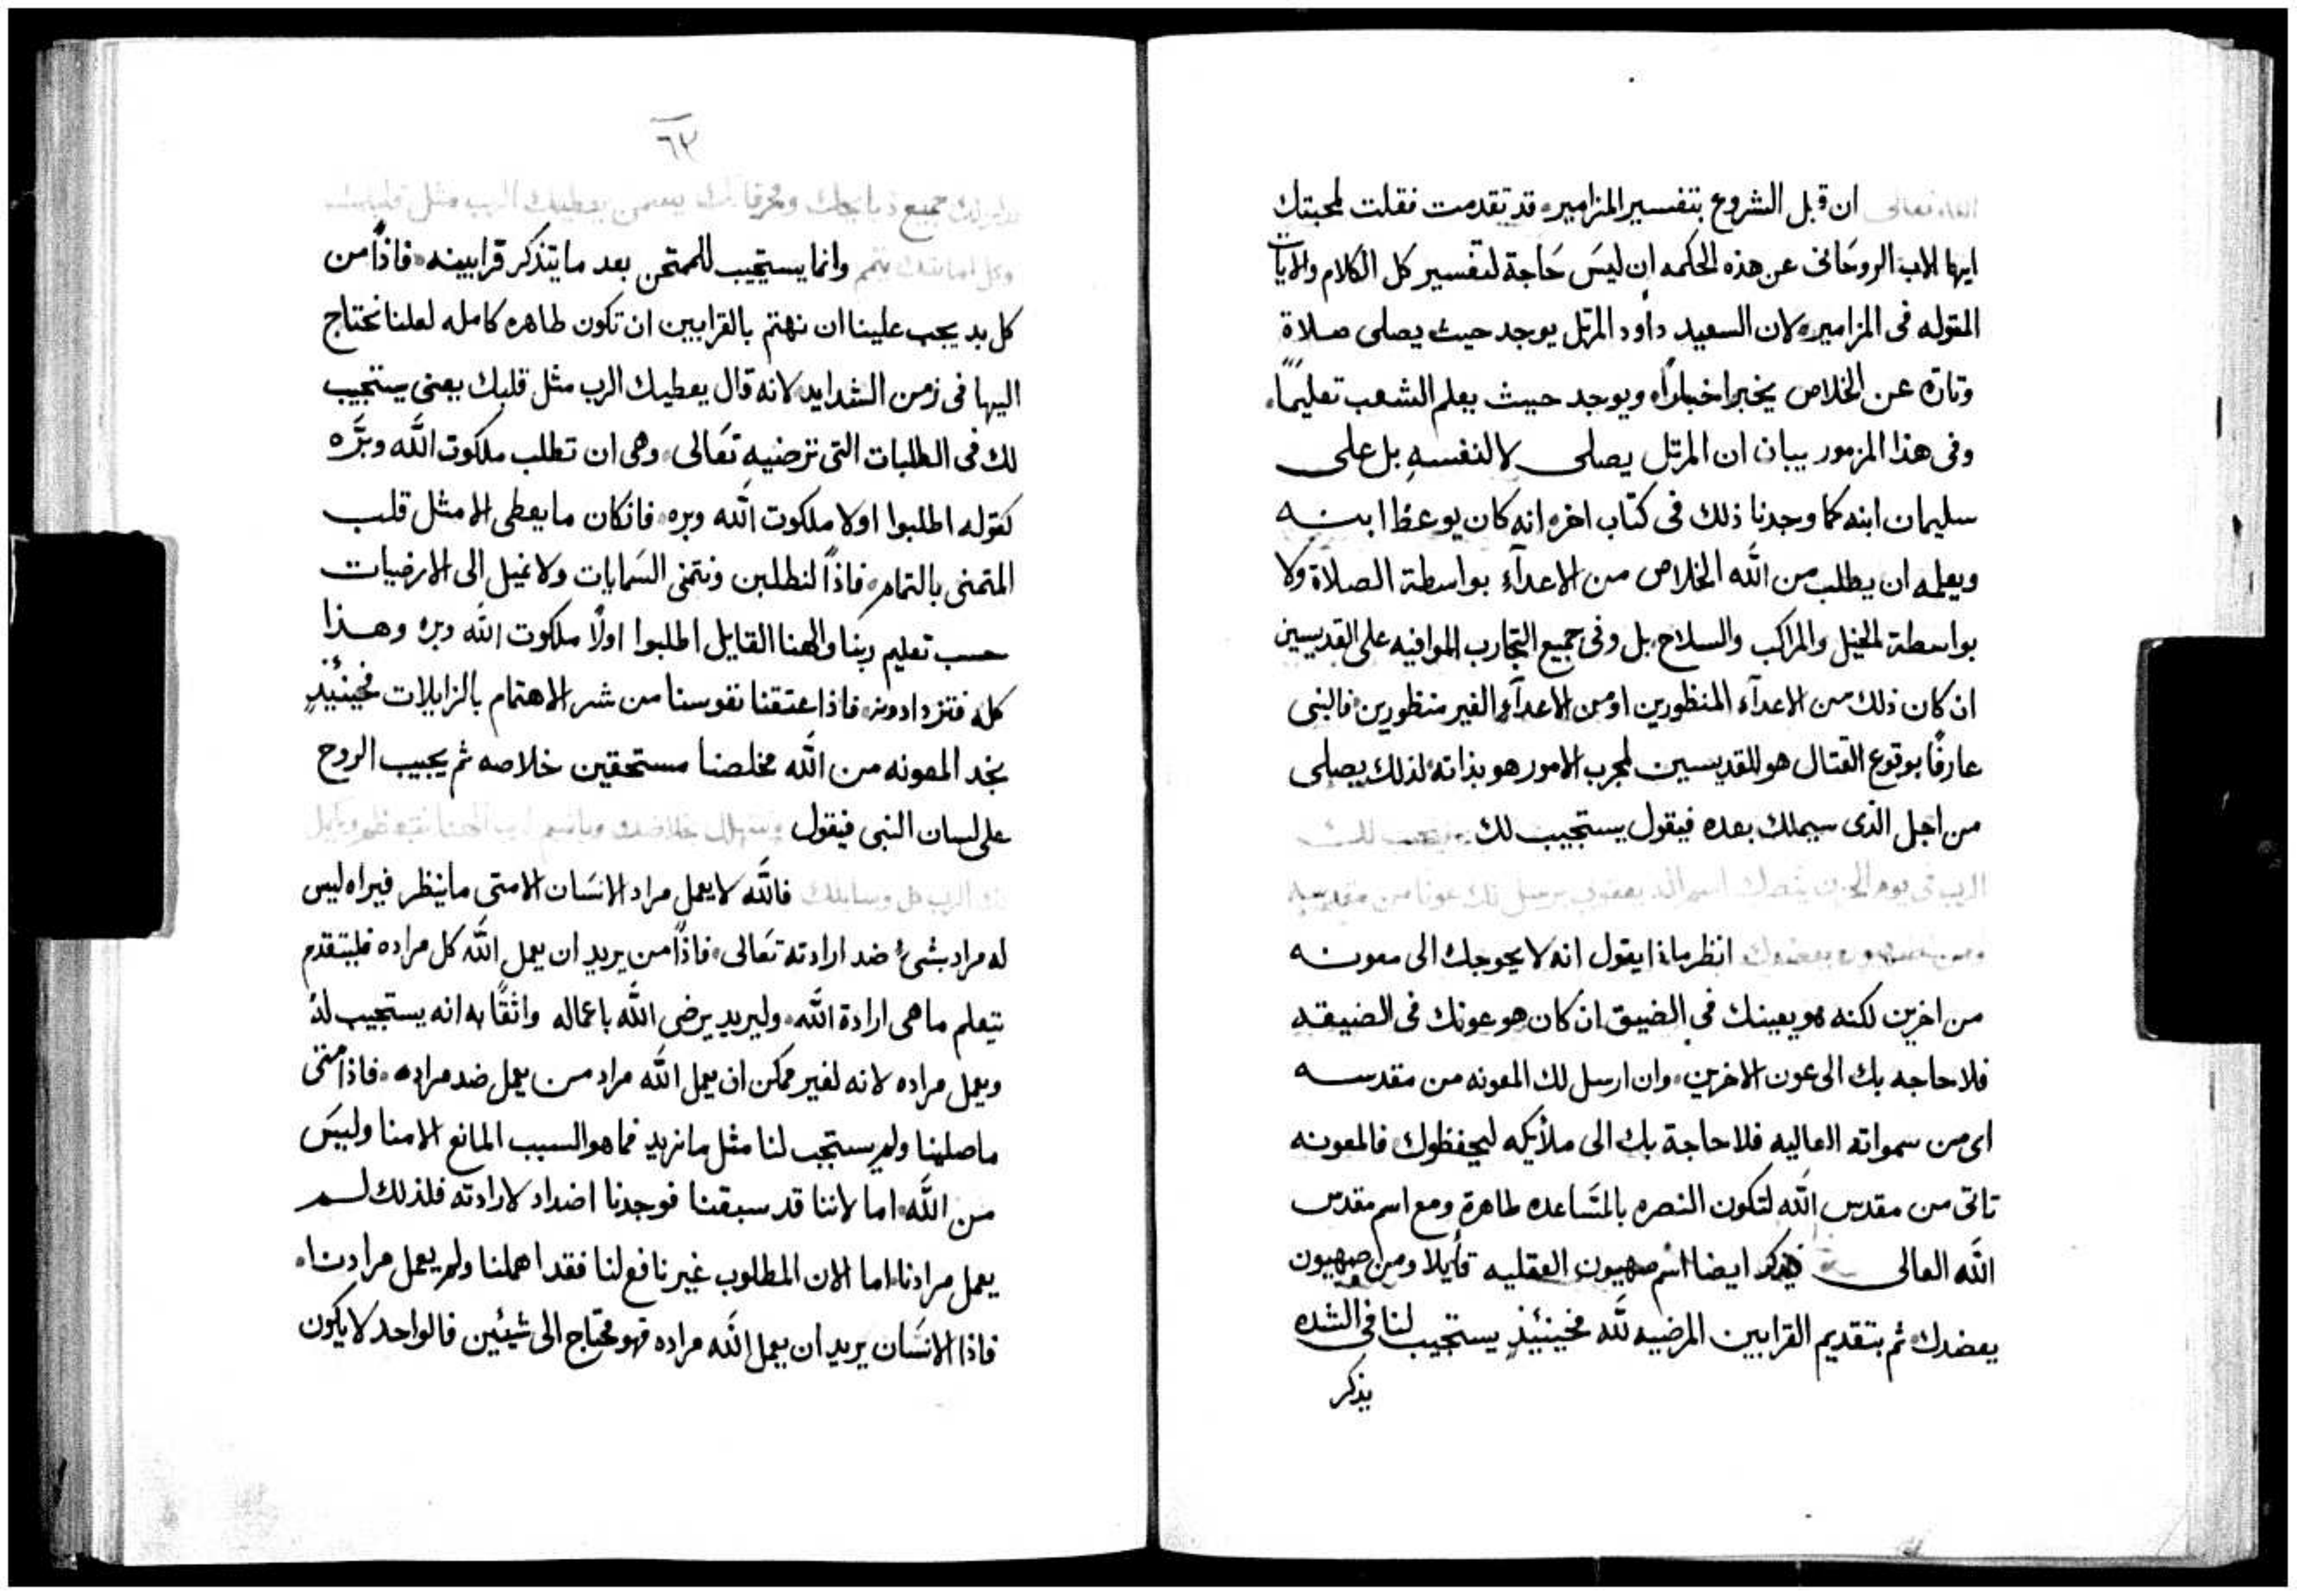 ان قبل الشروع بتفسير المزامير قد تقدمت فقلت لمحبتك
ايها الاب الروحَانى عن هذه الحكمه ان ليسَ حَاجة لتفسير كل الكلام والايات
المقوله فى المزامير لان السعيد داود المرتل يوجد حيث يصلى صلاة
وتارة عن الخلاص يخبر اخبارًا ويوجد حيث يعلم الشعب تعليمًا.
وفى هذا المزمور بيان ان المرتل يصلى لا لنفسهِ بل على
سليمان ابنه كما وجدنا ذلك فى كتاب اخر انه كان يوعظ ابنه
ويعلمه ان يطلب من اللّه الخلاص من الاعدآء بواسطة الصلاة ولا
بواسطة الخيل والمراكب والسلاح بل وفى جميع التجارب الموافيه على القديسين
ان كان ذلك من الاعدآء المنظورين او من الاعدآء الغير منظورين فالنبى
عارفًا بوقوع القتال هو للقديسين لمجرب الامور هو بذاته لذلك يصلى
من اجل الذى سيملك بعده فيقول يستجيب لك يستجيب لك
الرب فى يوم الحزن ينصرك اسم اله يعقوب يرسل لك عونا من مقدسه
ومن صهيون يعضدك انظر ماذا يقول انه لا يحوجك الى معونه
من اخرين لكنه هو يعينك فى الضيق ان كان هو عونك فى الضيقه
فلا حاجه بك الى عون الاخرين وان ارسل لك المعونه من مقدسه
اى من سمواته العاليه فلا حاجة بك الى ملأيكه ليحفظوك فالمعونه
تاتى من مقدس اللّه لتكون النصره بالمسَاعده طاهرة ومع اسم مقدس
اللّه العالى يذكر ايضا اسم صهيون العقليه قأيلا ومن صهيون
يعضدك ثم بتقديم القرابين المرضيه للّه فحينئيذٍ يستجيب لنا فى الشده
يذكر
٦٢
جميع ذبايحك ومحرقاتك يعطيك الرب مثل قلبك
يتمم وانما يستجيب للممتحن بعد ما يتذكر قرابينه فاذًا من
كل بد يجب علينا ان نهتم بالقرابين ان تكون طاهره كامله لعلنا نحتاج
اليها فى زمن الشدايد لانه قال يعطيك الرب مثل قلبك يعنى يستجيب
لك فى الطلبات التى ترضيه تعَالى وهى ان تطلب ملكوت اللّه وبرَّه
كقوله اطلبوا اولا ملكوت اللّه وبره فان كان ما يعطى الا مثل قلب
المتمنى بالتمام فاذًا لنطلبن ونتمنى السَمايات ولا نميل الى الارضيات
حسب تعليم ربنا والهنا القايل اطلبوا اولًا ملكوت اللّه وبره وهذا
كله فتزدادونه فاذا اعتقنا نفوسنا من شر الاهتمام بالزايلات فحينئيذٍ
نجد المعونه من اللّه مخلصنا مستحقين خلاصه ثم يجيب الروح
على لسان النبى فيقول بخلاصك وباسم الهنا
الرب كل وسايلك فاللّه لا يعمل مراد الانسَان الا متى ما ينظر فيراه ليس
له مراد بشئ ضد ارادته تعَالى فاذًا من يريد ان يعمل اللّه كل مراده فليتقدم
يتعلم ما هى ارادة اللّه وليريد يرضى اللّه باعماله واثقًا به انه يستجيب له
ويعمل مراده لانه لغير ممكن ان يعمل اللّه مراد من يعمل ضد مراده فاذا متى
ما صلينا ولم يستجب لنا مثل ما نريد فما هو السبب المانع الا منا وليسَ
من اللّه اما لاننا قد سبقنا فوجدنا اضداد لارادته فلذلك لم
يعمل مرادنا اما الان المطلوب غير نافع لنا فقد اهملنا ولم يعمل مرادنا
فاذا الانسَان يريد ان يعمل اللّه مراده فهو محتاج الى شيئين فالواحد لا يكون